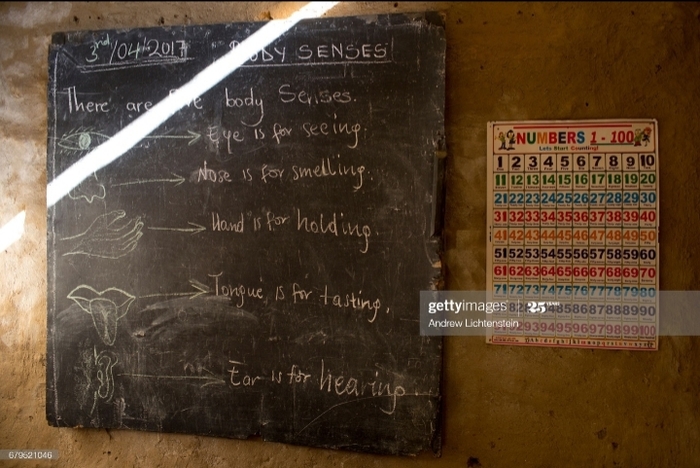 3rd/04/2017 BODY SENSES
There are five body Senses.
Eye is for seeing.
Nose is for smelling.
Hand is for holding.
Tongue is for tasting.
Ear is for hearing.
NUMBERS 1 - 100
Lets Start Counting!
1 2 3 4 5 6 7 8 9 10
11 12 13 14 15 16 17 18 19 20
21 22 23 24 25 26 27 28 29 30
31 32 33 34 35 36 37 38 39 40
41 42 43 44 45 46 47 48 49 50
51 52 53 54 55 56 57 58 59 60
61 62 63 64 65 66 67 68 69 70
71 72 73 74 75 76 77 78 79 80
82 86 87 88 89 90
92 93 94 95 96 97 98 99 100
gettyimages
Andrew Lichtenstein
679621046